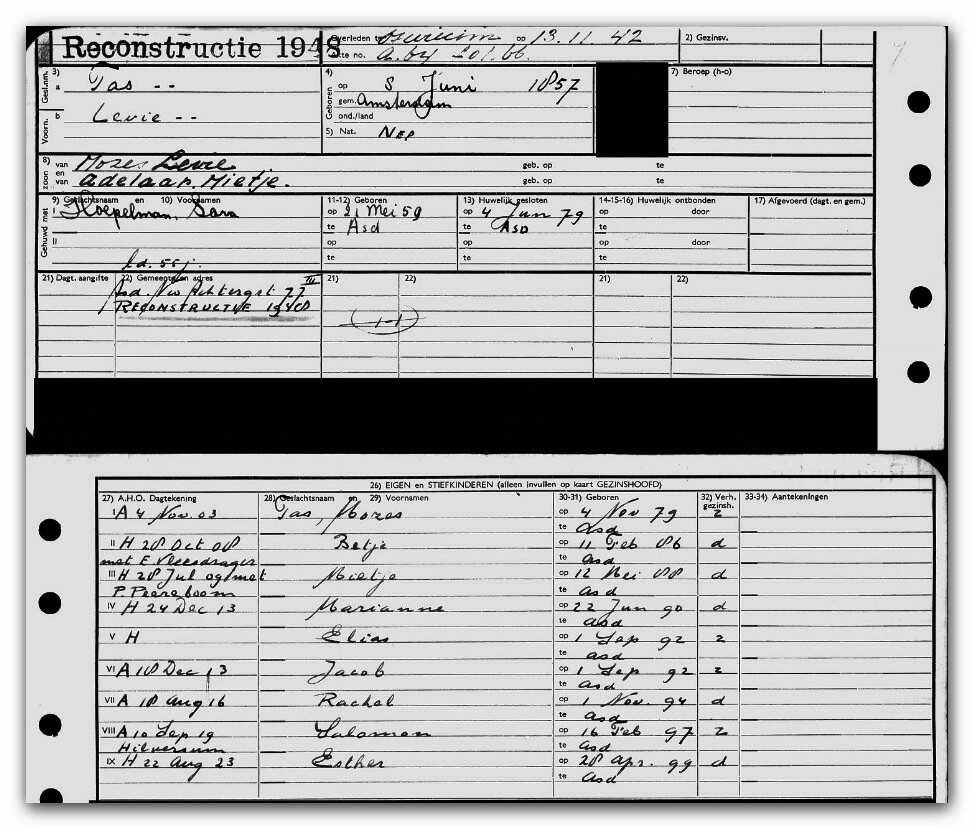 Reconstructie 1948
Overleden te op 13.11.42
2) Gezinsv.
Akte no. a.by
Gesl.nm. 3) a Tas --
Voorn. b Levie --
4) Geboren op 8 Juni 1857
gem. Amsterdam
ond./land
5) Nat. Ned
7) Beroep (h-o)
8) zoon van Mozes Levie geb. op te
en van Adelaar, Mietje. geb. op te
Gehuwd met 9) Geslachtsnaam en 10) Voornamen
I Koepelman, Sara
II
ld. 55j.
11-12) Geboren
op 21 Mei 59
te Asd
op
te
13) Huwelijk gesloten
op 4 Jun 79
te Asd
op
te
14-15-16) Huwelijk ontbonden
op door
te
op door
te
17) Afgevoerd (dagt. en gem.)
21) Dagt. aangifte 22) Gemeente en adres 21) 22) 21) 22)
Asd. Nw Achtergst 77 III
RECONSTRUCTIE 1948
(1-1)
26) EIGEN en STIEFKINDEREN (alleen invullen op kaart GEZINSHOOFD)
27) A.H.O. Dagtekening 28) Geslachtsnaam en 29) Voornamen 30-31) Geboren 32) Verh. gezinsh. 33-34) Aantekeningen
I A 4 Nov. 03 Tas, Mozes op 4 Nov 79 z
te Asd
II H 28 Oct 08 Betje op 11 Feb 86 d
met E. Vleesdrager te asd
III H 28 Jul 09 met Mietje op 12 Mei 88 d
P. Peereboom te asd
IV H 24 Dec 13 Marianne op 22 Jun 90 d
te asd
V H Elias op 1 Sep 92 z
te asd
VI A 18 Dec 13 Jacob op 1 Sep 92 z
te asd
VII A 18 Aug 16 Rachel op 1 Nov. 94 d
te asd
VIII A 10 Sep 19 Salomon op 16 Feb 97 z
Hilversum te asd
IX H 22 Aug 23 Esther op 28 Apr. 99 d
te asd